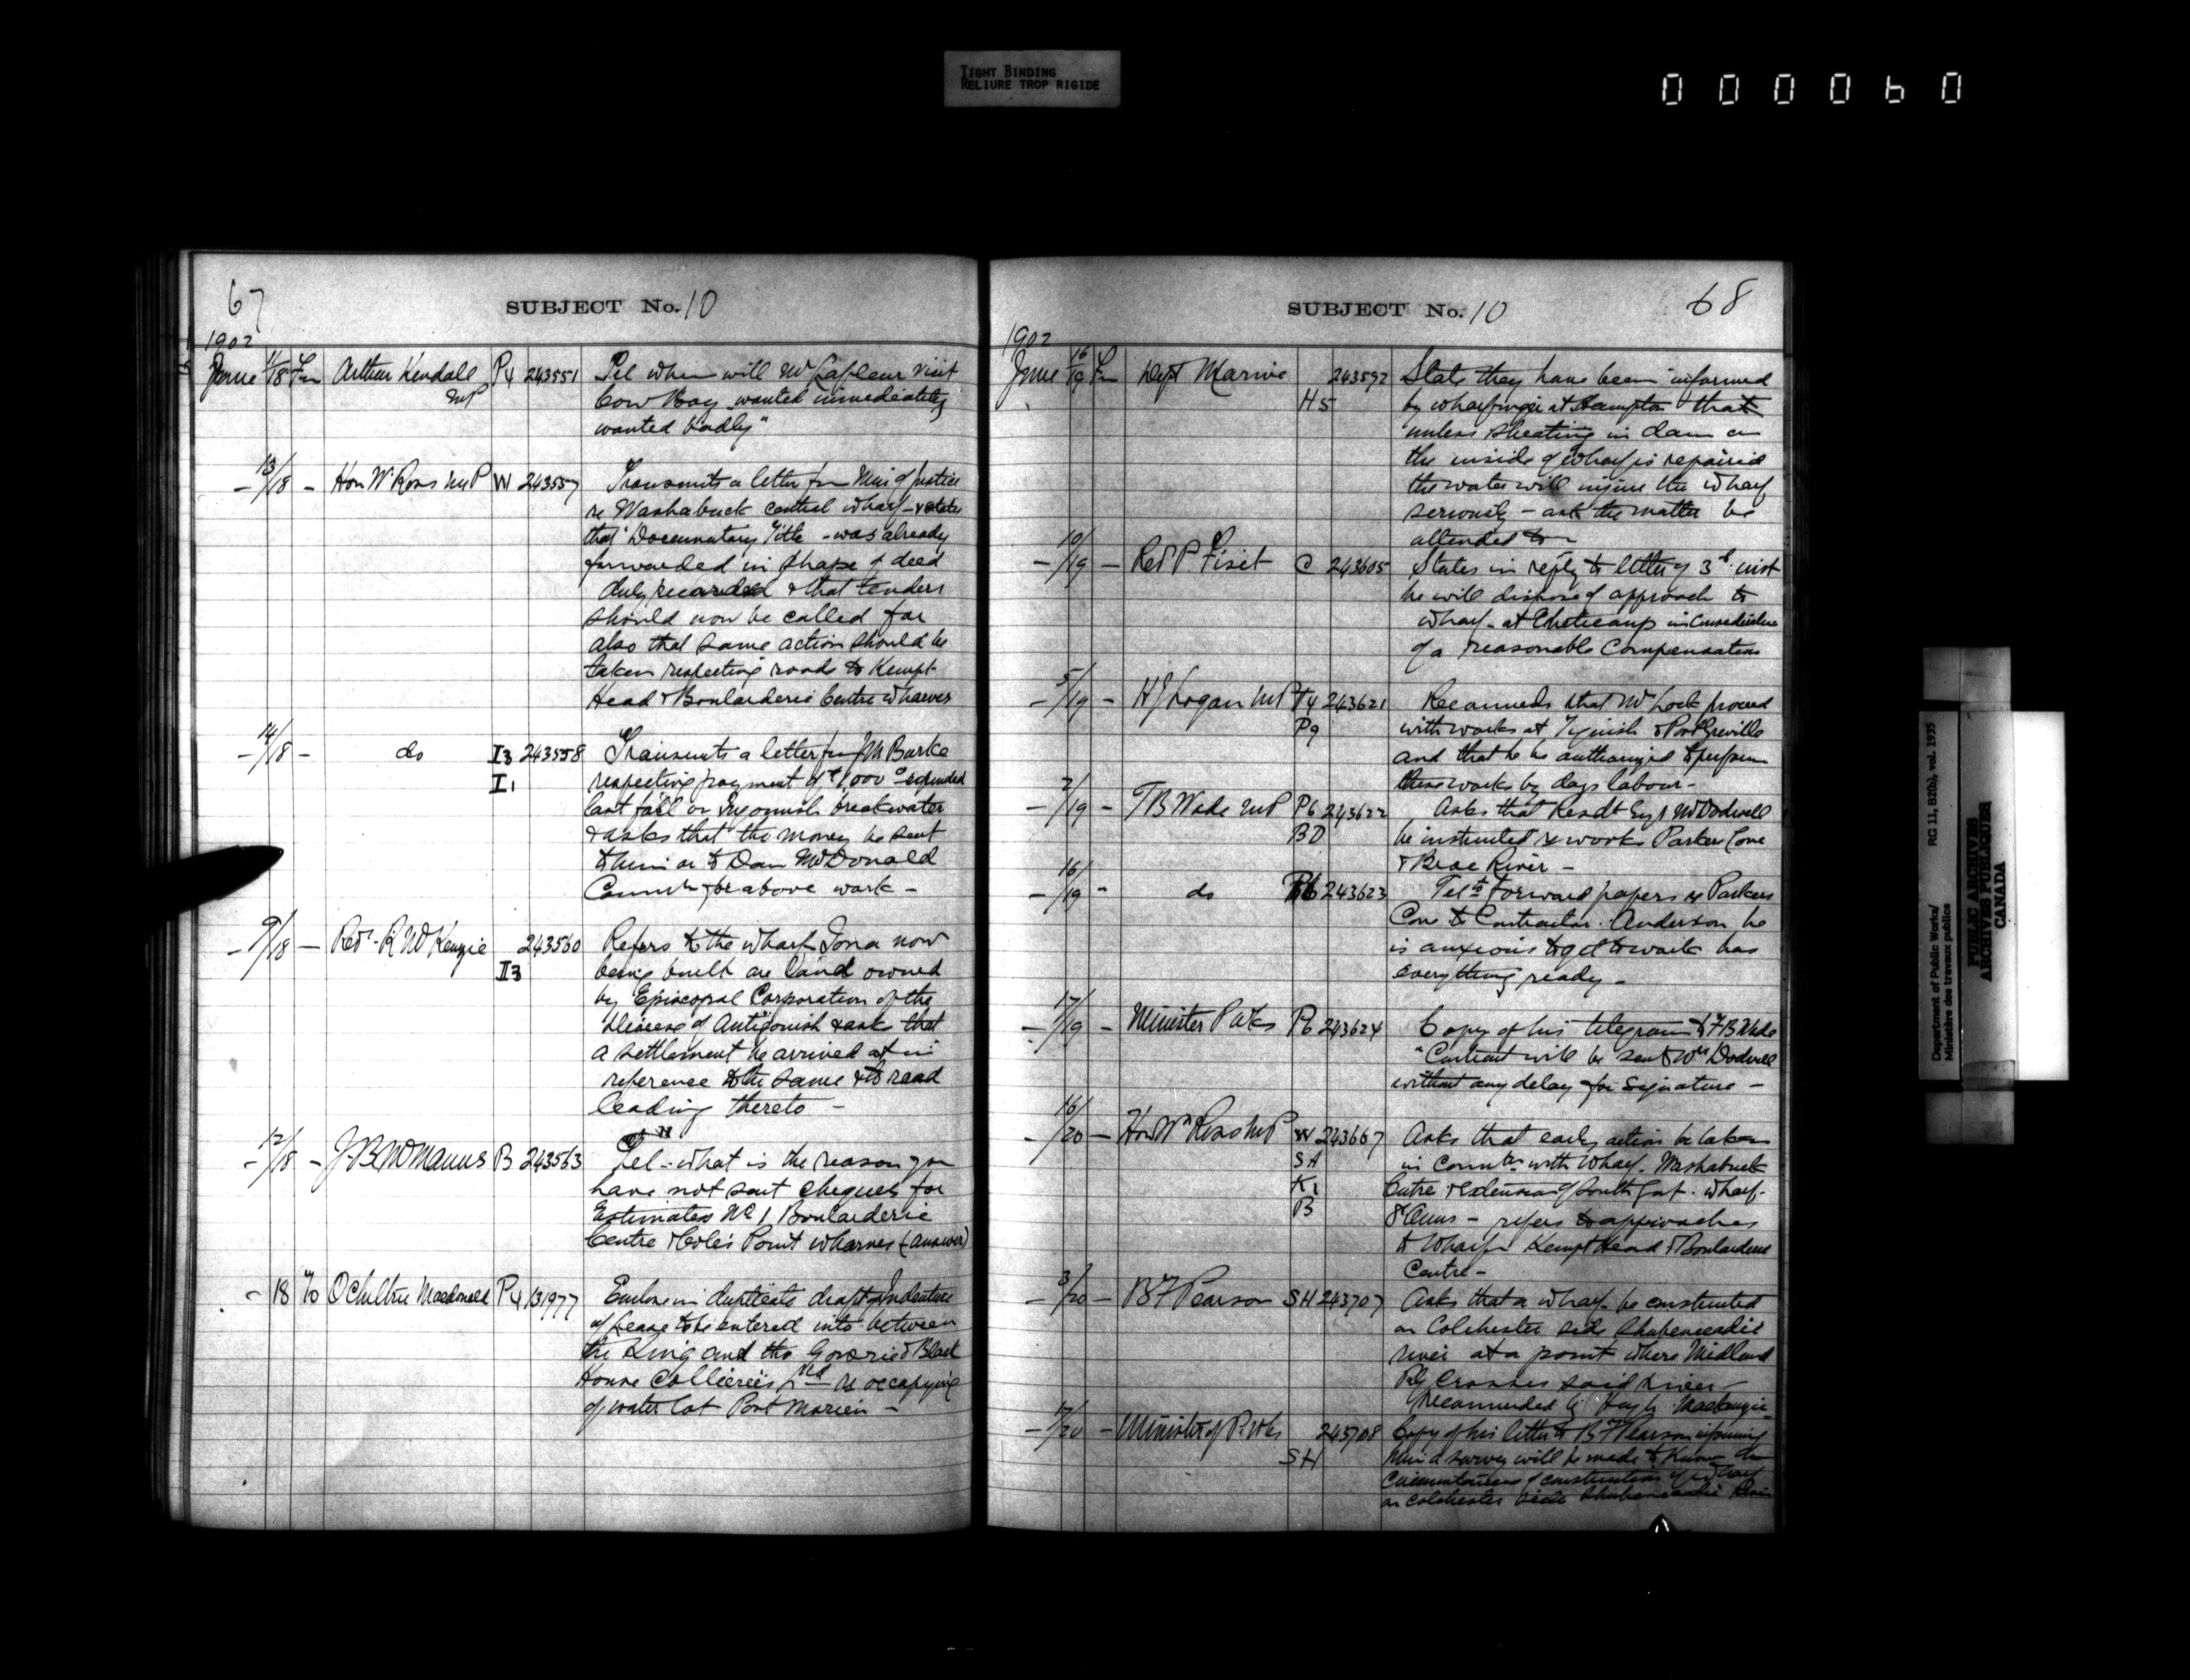 TIGHT BINDING
RELIURE TROP RIGIDE
000060
67
SUBJECT No. 10
1902
June 11/18 Fm Arthur Kendall P4 243551 Tel when will Mr Lafleur visit
MP Cow Bay wanted immediately
wanted badly"
- 13/18 - Hon Wm Ross MP W 243557 Transmits a letter fm Min of Justice
re Washabuck central wharf - & states
that Documentary Title - was already
forwarded in shape of deed
duly recorded & that tenders
should now be called for
also that same action should be
taken respecting roads to Kempt
Head & Boularderie Centre wharves
- 14/18 - do I3 243558 Transmits a letter fm J M Burke
I1 respecting payment of $1,000 expended
last fall on Ingonish breakwater
& asks that the money be sent
to him or to Dan McDonald
for above work -
- 9/18 - Revd R McKenzie 243560 Refers to the wharf Iona now
I3 being built on land owned
by Episcopal Corporation of the
Diocese of Antigonish & ask that
a settlement be arrived at in
reference to the same & to road
leading thereto -
- 12/18 - J B McManus B 243563 Tel - what is the reason you
have not sent cheques for
Estimates No 1 Boularderie
Centre & Cole's Point wharves (answer)
- 18 To Ochiltree Macdonald P4 131977 Enclose in duplicate draft Indenture
of Lease to be entered into between
the King and the Gowrie & Block
House Collieries Ltd re occupying
of water lot Port Morien -
68
SUBJECT No. 10
1902
June 16/19 Fm Dept Marine 243592 State they have been informed
H5 by wharfinger at Hampton that
unless sheating in dam on
the inside of wharf is repaired
the water will injure the wharf
seriously - ask the matter be
attended to -
- 10/19 - Revd P Fiset C 243605 States in reply to letter of 3rd inst
he will dispose of approach to
wharf at Cheticamp in consideration
of a reasonable Compensation
- 5/19 - H J Logan MP T4 243621 Recommends that Mr Lock proceed
P9 with works at Tignish & Port Greville
and that he be authorized to perform
these works by days labour -
- 2/19 - F B Wade MP P6 243622 Asks that Resdt Eng Mr Dodwell
be instructed re works Parkers Cove
& River -
- 16/19 - do P6 243623 Tel to forward papers re Parkers
Cove to Contractor. Anderson he
is anxious to get to work has
everything ready -
- 17/19 - Minister P Wks P6 243624 Copy of his telegram to F B Wade
"Contract will be sent Mr Dodwell
without any delay for signature -
- 16/20 - Hon Wm Ross MP W 243667 Asks that early action be taken
SA in with wharf. Washabuck
K1 Centre & extension of South Gut. wharf.
B St Anns - refers to approaches
to wharf Kempt Head & Boularderie
Centre -
- 3/20 - B F Pearson SH 243707 Asks that a wharf be constructed
on Colchester side Shubenacadie
river at a point where Midland
Ry crosses said river -
recommended by Hugh Mackenzie
- 17/20 - Minister of P. Wks 243708 Copy of his letter to B F Pearson informing
SH him a survey will be made to know the
circumstances of construction of wharf
on Colchester side Shubenacadie River
Department of Public Works/ RG 11, B2(b), vol. 1935
Ministère des travaux publics
PUBLIC ARCHIVES
ARCHIVES PUBLIQUES
CANADA